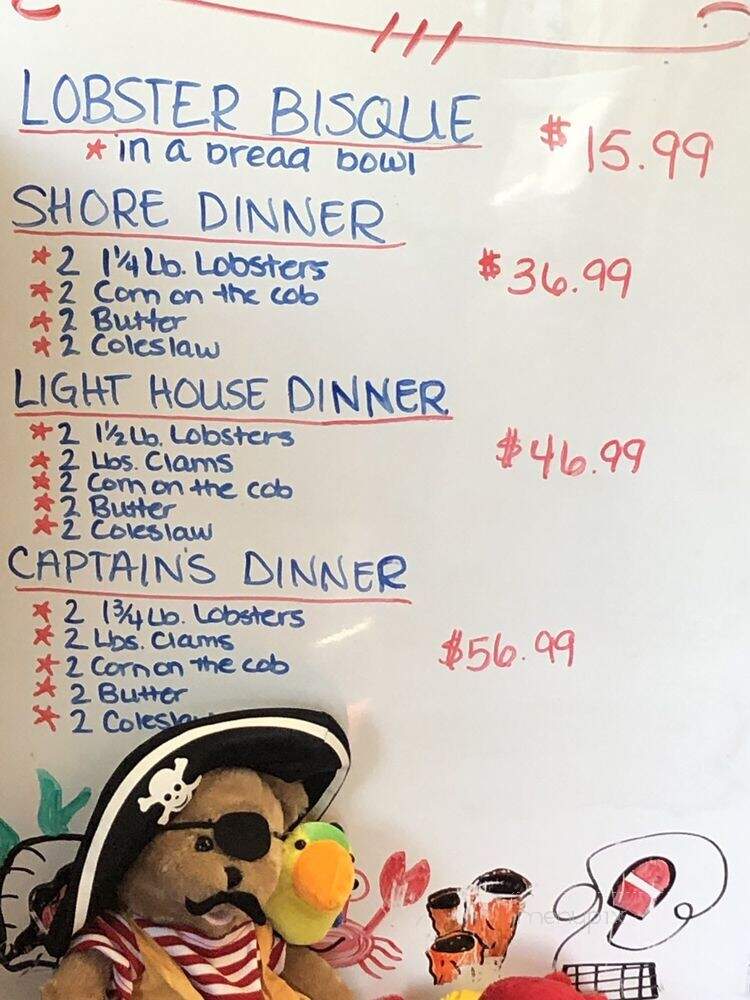 LOBSTER BISQUE $15.99
* in a bread bowl
SHORE DINNER
* 2 1¼ Lb. Lobsters $36.99
* 2 Corn on the cob
* 2 Butter
* 2 Coleslaw
LIGHT HOUSE DINNER
* 2 1½ Lb. Lobsters $46.99
* 2 Lbs. Clams
* 2 Corn on the cob
* 2 Butter
* 2 Coleslaw
CAPTAIN'S DINNER
* 2 1¾ Lb. Lobsters
* 2 Lbs. Clams $56.99
* 2 Corn on the cob
* 2 Butter
* 2 Coleslaw